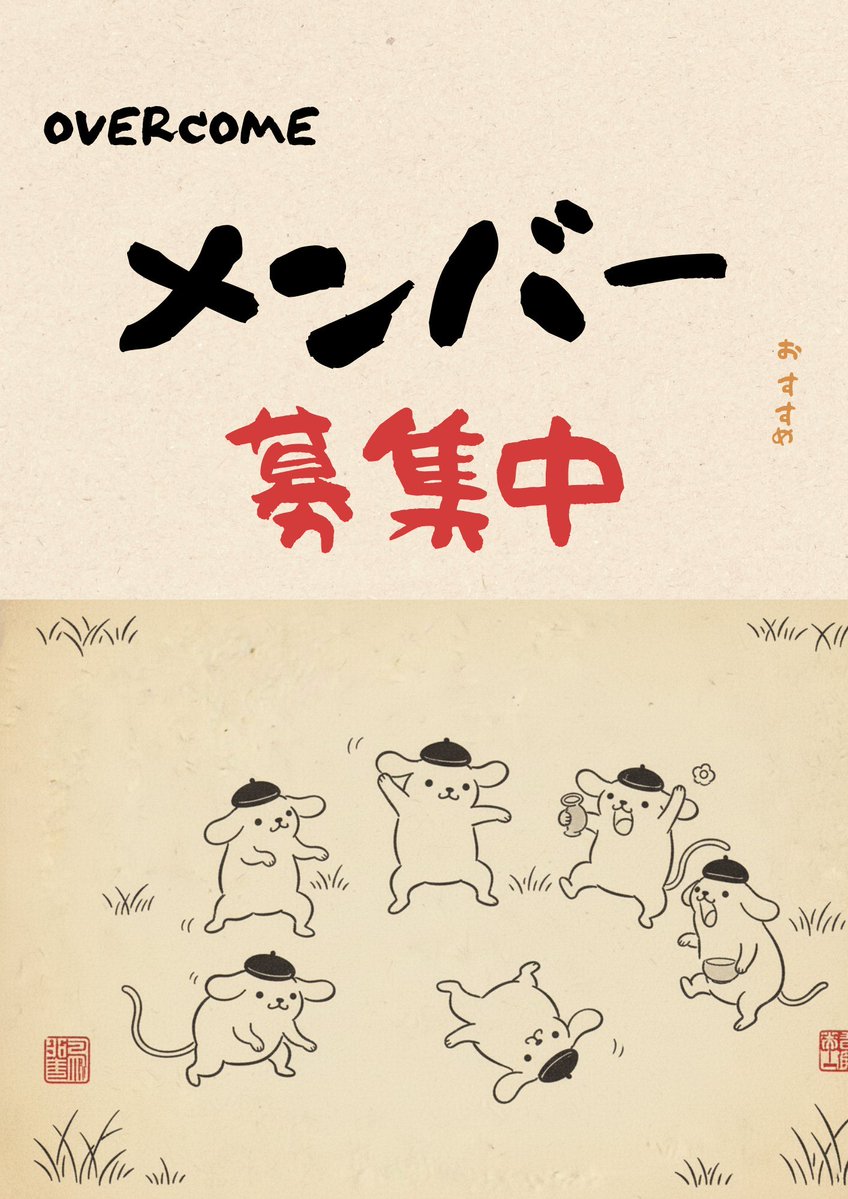 OVERCOME
メンバー
募集中
おすすめ